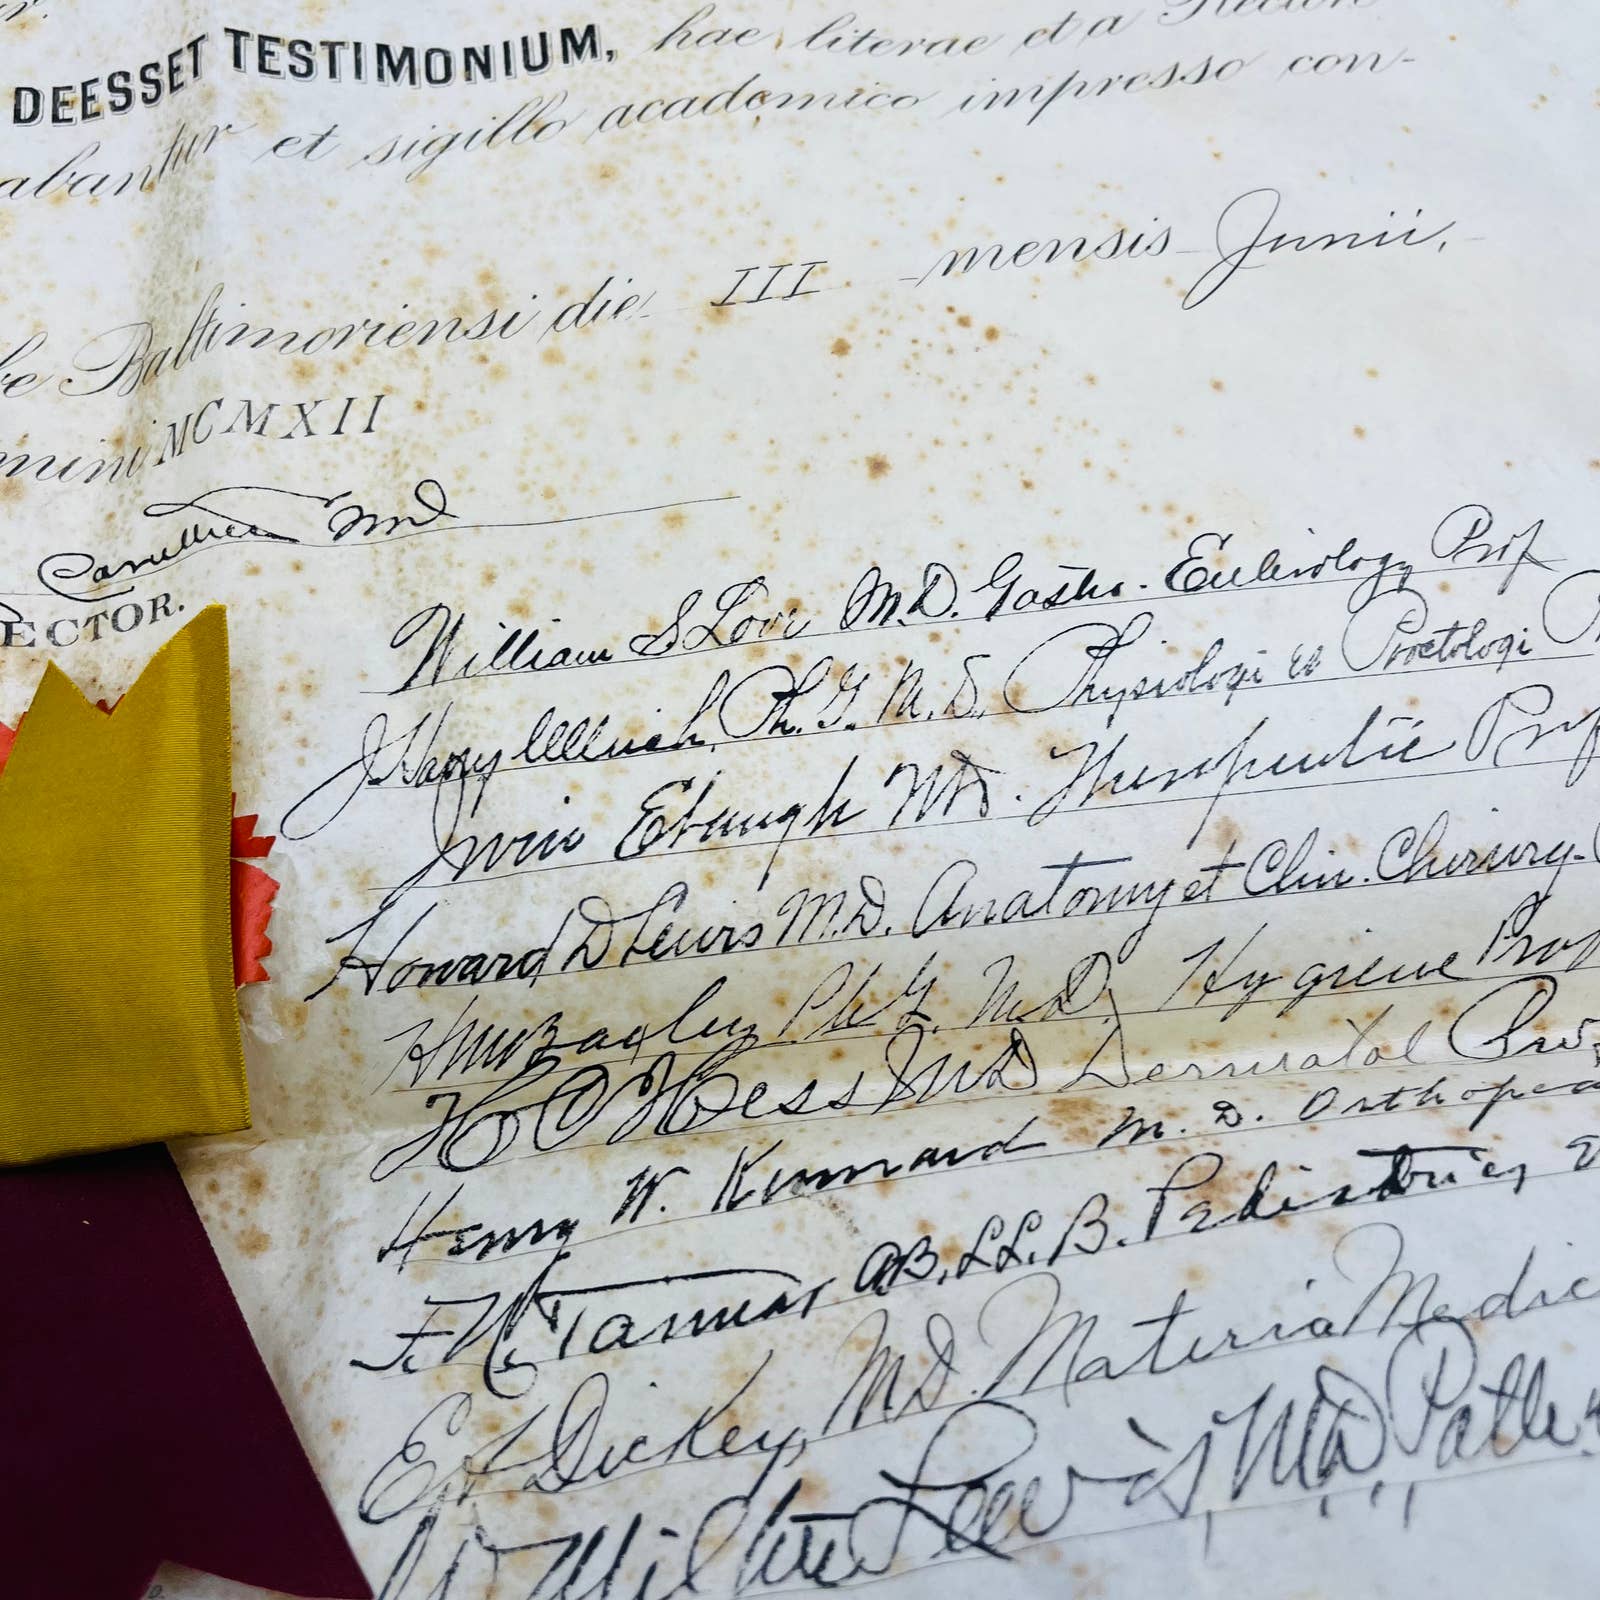 DEESSET TESTIMONIUM, hae literae et a
abantur et sigillo academico impresso con-
Baltimoriensi die III mensis Junii,
MCMXII
MD
ECTOR.
William S Love M.D. Gastro-Enterology Prof
Ullrich, Ph. G. M.D. Physiologi et Proctologi
Ebaugh MD. Therapeutic Prof
Howard D Lewis M.D. Anatomy et Clin. Chirurg.
Ph G. M.D. Hygiene Prof
H O Hess MD Dermatol
Henry W. Kennard M.D. Orthopea
F. Tannar AB. LL.B.
E Dickey, MD. Materia Medic
Lewis, MD